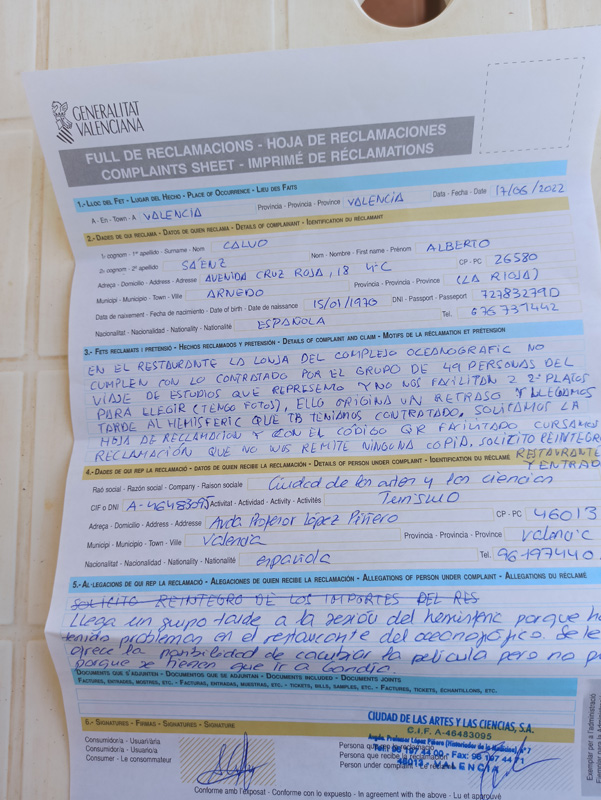 GENERALITAT
VALENCIANA
FULL DE RECLAMACIONS - HOJA DE RECLAMACIONES
COMPLAINTS SHEET - IMPRIMÉ DE RÉCLAMATIONS
1.- LLOC DEL FET - LUGAR DEL HECHO - PLACE OF OCCURRENCE - LIEU DES FAITS
A - En - Town - A VALENCIA Provincia - Provincia - Province VALENCIA Data - Fecha - Date 17/06/2022
2.- DADES DE QUI RECLAMA - DATOS DE QUIEN RECLAMA - DETAILS OF COMPLAINANT - IDENTIFICATION DU RÉCLAMANT
1r cognom - 1er apellido - Surname - Nom CALVO Nom - Nombre - First name - Prénom ALBERTO
2n cognom - 2º apellido SÁENZ CP - PC 26580
Adreça - Domicilio - Address - Adresse AVENIDA CRUZ ROJA, 18 4º C
Municipi - Municipio - Town - Ville ARNEDO Província - Provincia - Province (LA RIOJA)
Data de naixement - Fecha de nacimiento - Date of birth - Date de naissance 15/01/1970 DNI - Passaport - Passeport 72783279D
Nacionalitat - Nacionalidad - Nationality - Nationalité ESPAÑOLA Tel. 676 737442
3.- FETS RECLAMATS I PRETENSIÓ - HECHOS RECLAMADOS Y PRETENSIÓN - DETAILS OF COMPLAINT AND CLAIM - MOTIFS DE LA RÉCLAMATION ET PRÉTENTION
EN EL RESTAURANTE LA LONJA DEL COMPLEJO OCEANOGRAFIC NO
CUMPLEN CON LO CONTRATADO POR EL GRUPO DE 49 PERSONAS DEL
VIAJE DE ESTUDIOS QUE REPRESENTO Y NO NOS FACILITAN 2 2ºS PLATOS
PARA ELEGIR (TENGO FOTOS), ELLO ORIGINA UN RETRASO Y LLEGAMOS
TARDE AL HEMISFERIC QUE TB TENIAMOS CONTRATADO, SOLICITAMOS LA
HOJA DE RECLAMACION Y CON EL CÓDIGO QR FACILITADO CURSAMOS
RECLAMACIÓN QUE NO NOS REMITE NINGUNA COPIA. SOLICITO REINTEGRO
RESTAURANTE
Y ENTRAD
4.- DADES DE QUI REP LA RECLAMACIÓ - DATOS DE QUIEN RECIBE LA RECLAMACIÓN - DETAILS OF PERSON UNDER COMPLAINT - IDENTIFICATION DU RÉCLAMÉ
Raó social - Razón social - Company - Raison sociale Ciudad de las artes y las ciencias
CIF o DNI A-46483095 Activitat - Actividad - Activity - Activités Turismo
Adreça - Domicilio - Address - Addresse Avda Profesor López Piñero CP - PC 46013
Municipi - Municipio - Town - Ville Valencia Província - Provincia - Province Valencia
Nacionalitat - Nacionalidad - Nationality - Nationalité española Tel. 96 197440
5.- AL·LEGACIONS DE QUI REP LA RECLAMACIÓ - ALEGACIONES DE QUIEN RECIBE LA RECLAMACIÓN - ALLEGATIONS OF PERSON UNDER COMPLAINT - ALLEGATIONS DU RÉCLAMÉ
SOLICITO REINTEGRO DE LOS IMPORTES DEL RES
Llega un grupo tarde a la sesión del hemisfèric porque h
tenido problemas en el restaurante del oceanográfico. Se le
ofrece la posibilidad de cambiar la película pero no p
porque se tienen que ir a Gandía.
DOCUMENTS QUE S'ADJUNTEN - DOCUMENTOS QUE SE ADJUNTAN - DOCUMENTS INCLUDED - DOCUMENTS JOINTS
FACTURES, ENTRADES, MOSTRES, ETC. - FACTURAS, ENTRADAS, MUESTRAS, ETC. - TICKETS, BILLS, SAMPLES, ETC. - FACTURES, TICKETS, ÉCHANTILLONS, ETC.
6.- SIGNATURES - FIRMAS - SIGNATURES - SIGNATURE
CIUDAD DE LAS ARTES Y LAS CIENCIAS, S.A.
C.I.F. A-46483095
Avgda. Professor López Piñero (Historiador de la Medicina), nº 7
Tel.: 96 197 44 00 - Fax: 96 197 44 71
46013 - VALENCIA
Consumidor/a - Usuari/ària
Consumidor/a - Usuario/a
Consumer - Le consommateur
Persona que rep la reclamació
Persona que recibe la reclamación
Person under complaint - Le réclamé
Conforme amb l'exposat - Conforme con lo expuesto - In agreement with the above - Lu et approuvé
Exemplar per a l'administració